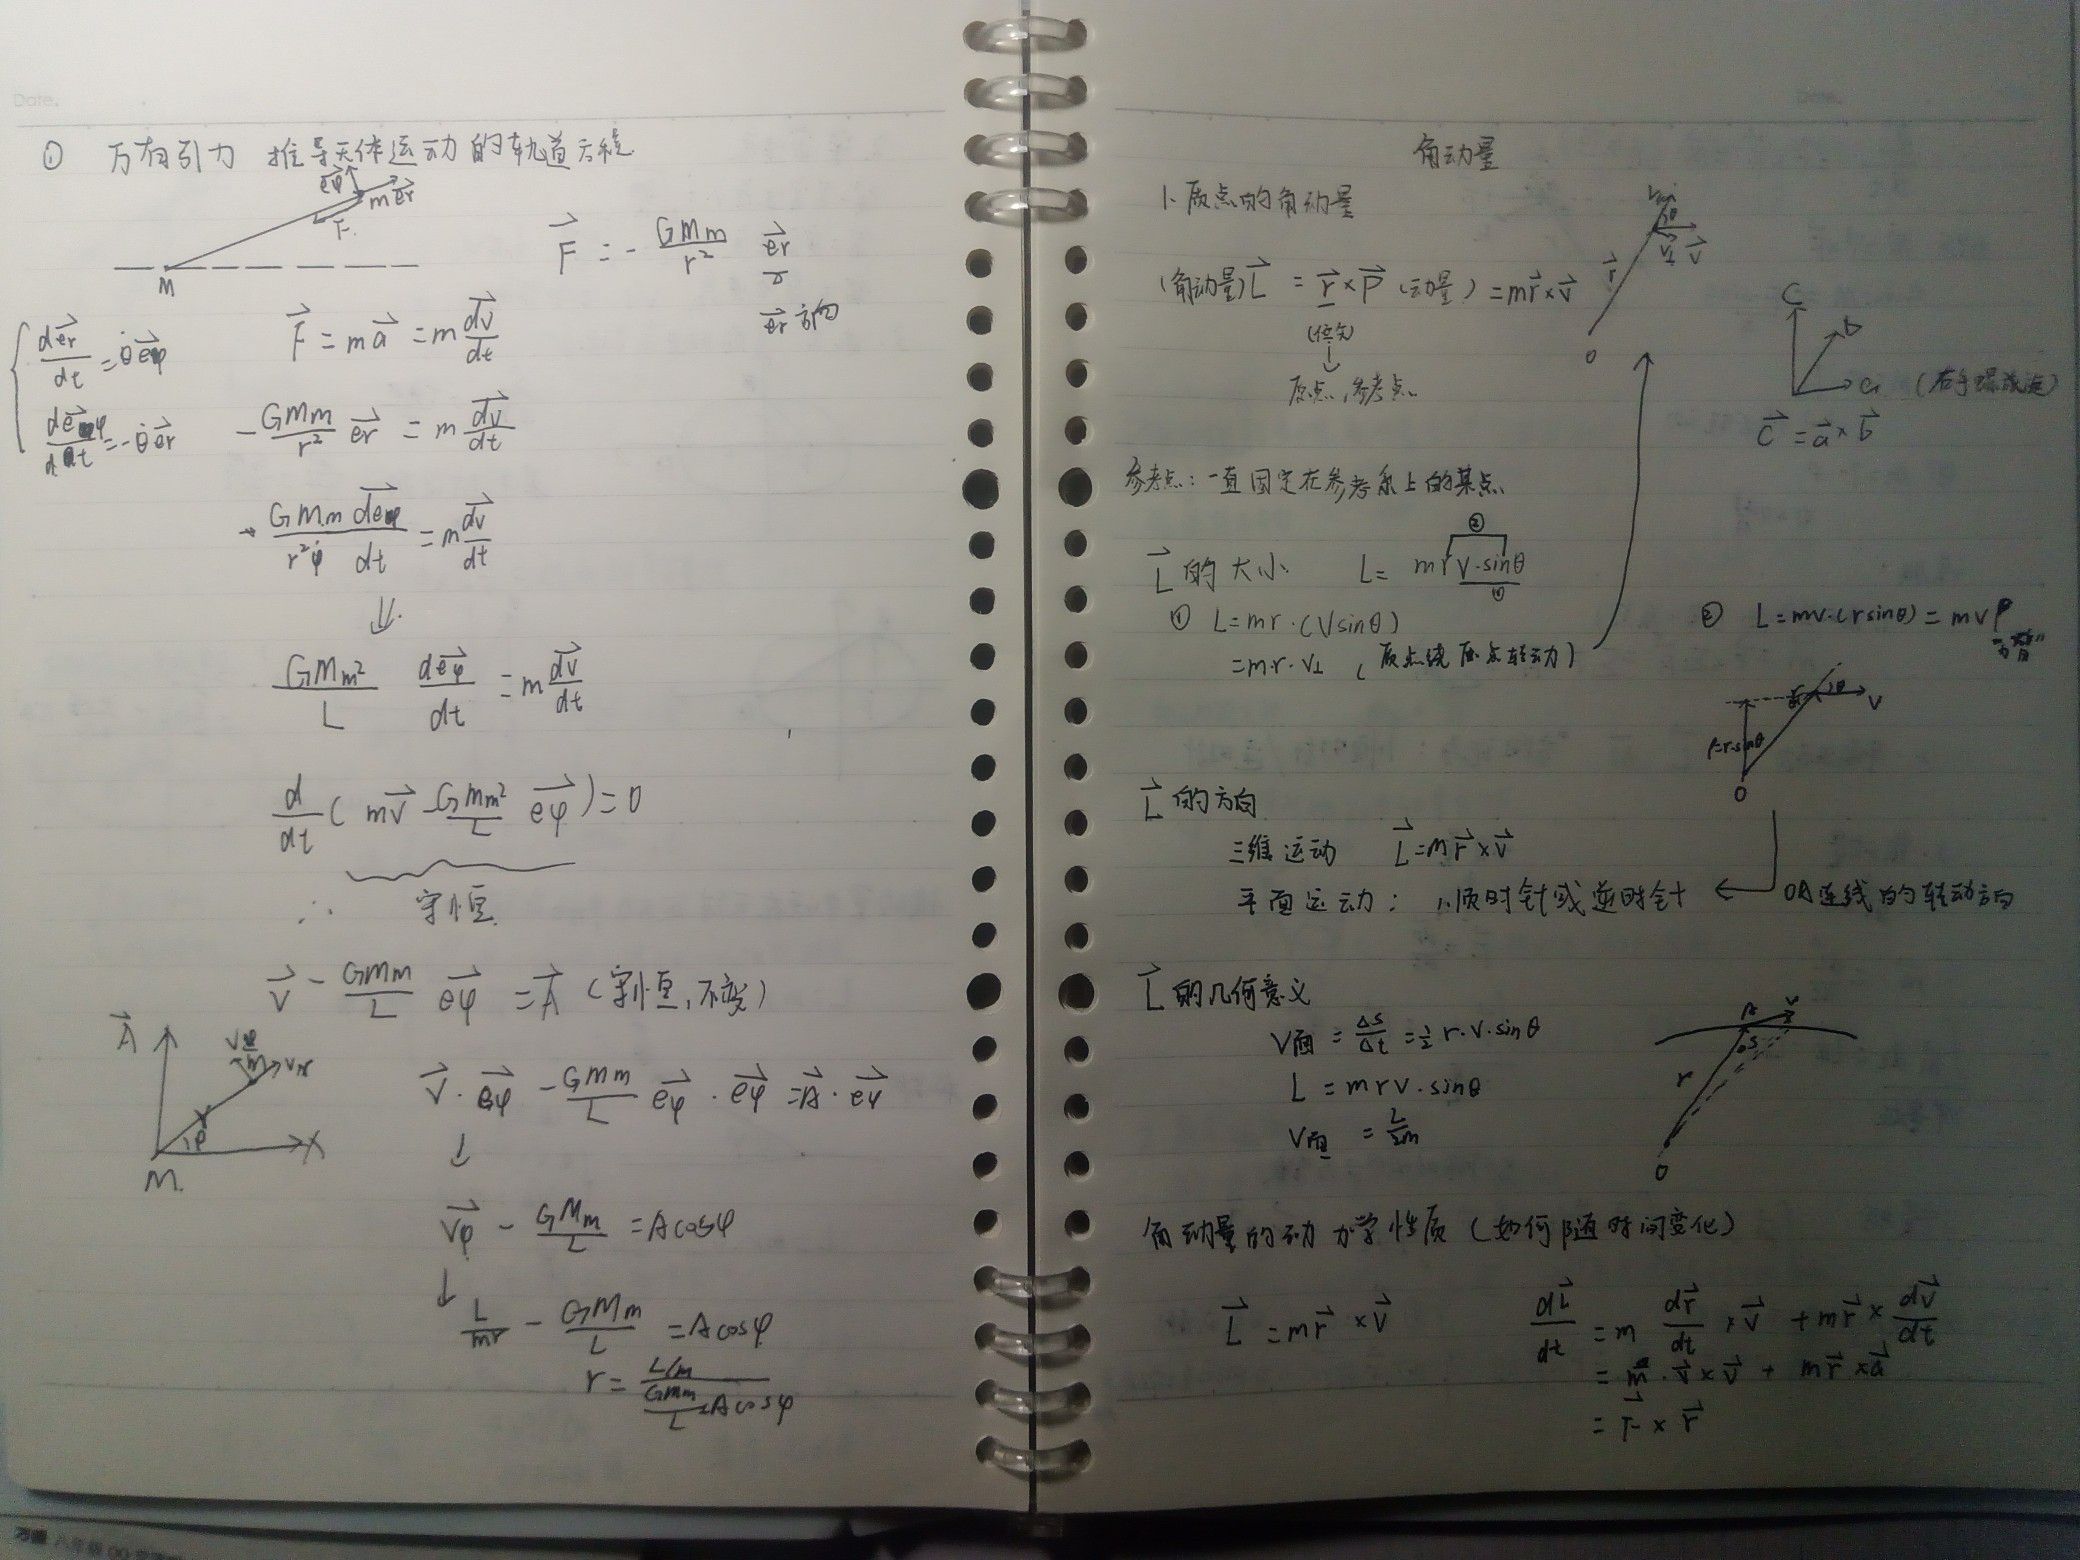 Date.
① 万有引力 推导天体运动的轨道方程
eφ m er
F
M
F = - GMm/r² er
er 方向
der/dt = θ̇ eφ
F = ma = m dv/dt
deφ/dt = -θ̇ er
- GMm/r² er = m dv/dt
GMm/r²φ̇ deφ/dt = m dv/dt
⇓
GMm²/L deφ/dt = m dv/dt
d/dt ( mv - GMm²/L eφ ) = 0
∴ 守恒
v - GMm/L eφ = A (守恒,不变)
A
φ
M
X
v · eφ - GMm/L eφ · eφ = A · eφ
↓
vφ - GMm/L = Acosφ
↓
L/mr - GMm/L = Acosφ
r =
角动量
1. 质点的角动量
(角动量) L = r × P (动量) = mr × v
(位矢)
↓
原点,参考点
r
θ
v⊥ v
O
C
b
a (右手螺旋定)
C = a × b
参考点: 一直固定在参考系上的某点
②
L 的大小 L = mrv·sinθ
①
① L = mr·(Vsinθ)
= m·r·v⊥ (质点绕原点转动)
② L = mv·(rsinθ) = mvρ
θ
v
ρ=r·sinθ
O
L 的方向
三维运动 L = mr × v
平面运动: 顺时针或逆时针 ← OA连线的转动方向
L 的几何意义
V面 = ΔS/Δt = 1/2 r·v·sinθ
L = mrv·sinθ
V面 = L/2m
A
v
ΔS
r
O
角动量的动力学性质 (如何随时间变化)
L = mr × v
dL/dt = m dr/dt × v + mr × dv/dt
= m·v × v + mr × a
= F × r